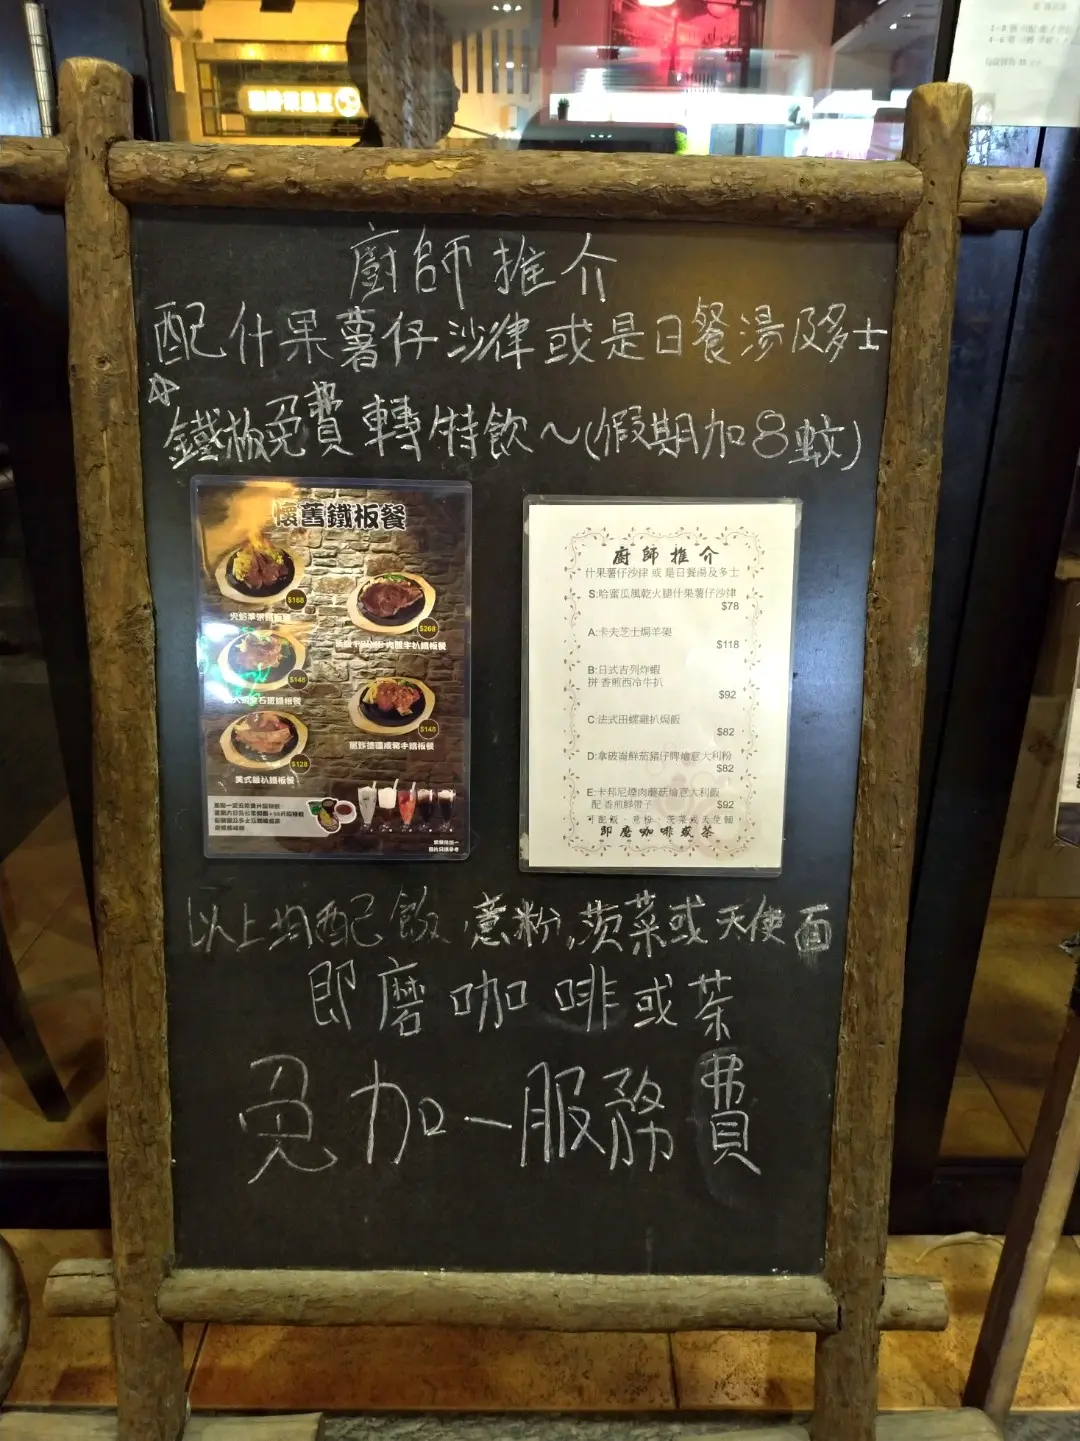 廚師推介
配什果薯仔沙律或是日餐湯及多士
☆
鐵板免費轉特飲～(假期加8蚊)
懷舊鐵板餐
$168
$268
$148
$148
$128
美式雞扒鐵板餐
廚師推介
什果薯仔沙律 或 是日餐湯及多士
S:哈蜜瓜風乾火腿什果薯仔沙律
$78
A:卡夫芝士焗羊架
$118
B:日式吉列炸蝦
拼 香煎西冷牛扒
$92
C:法式田螺雞扒焗飯
$82
D:拿破崙鮮茄豬仔髀燴意大利粉
$82
E:卡邦尼煙肉蘑菇燴意大利飯
配 香煎鮮帶子
$92
可配飯、意粉、茨菜或天使麵
即磨咖啡或茶
以上均配飯,意粉,茨菜或天使面
即磨咖啡或茶
免加一服務費